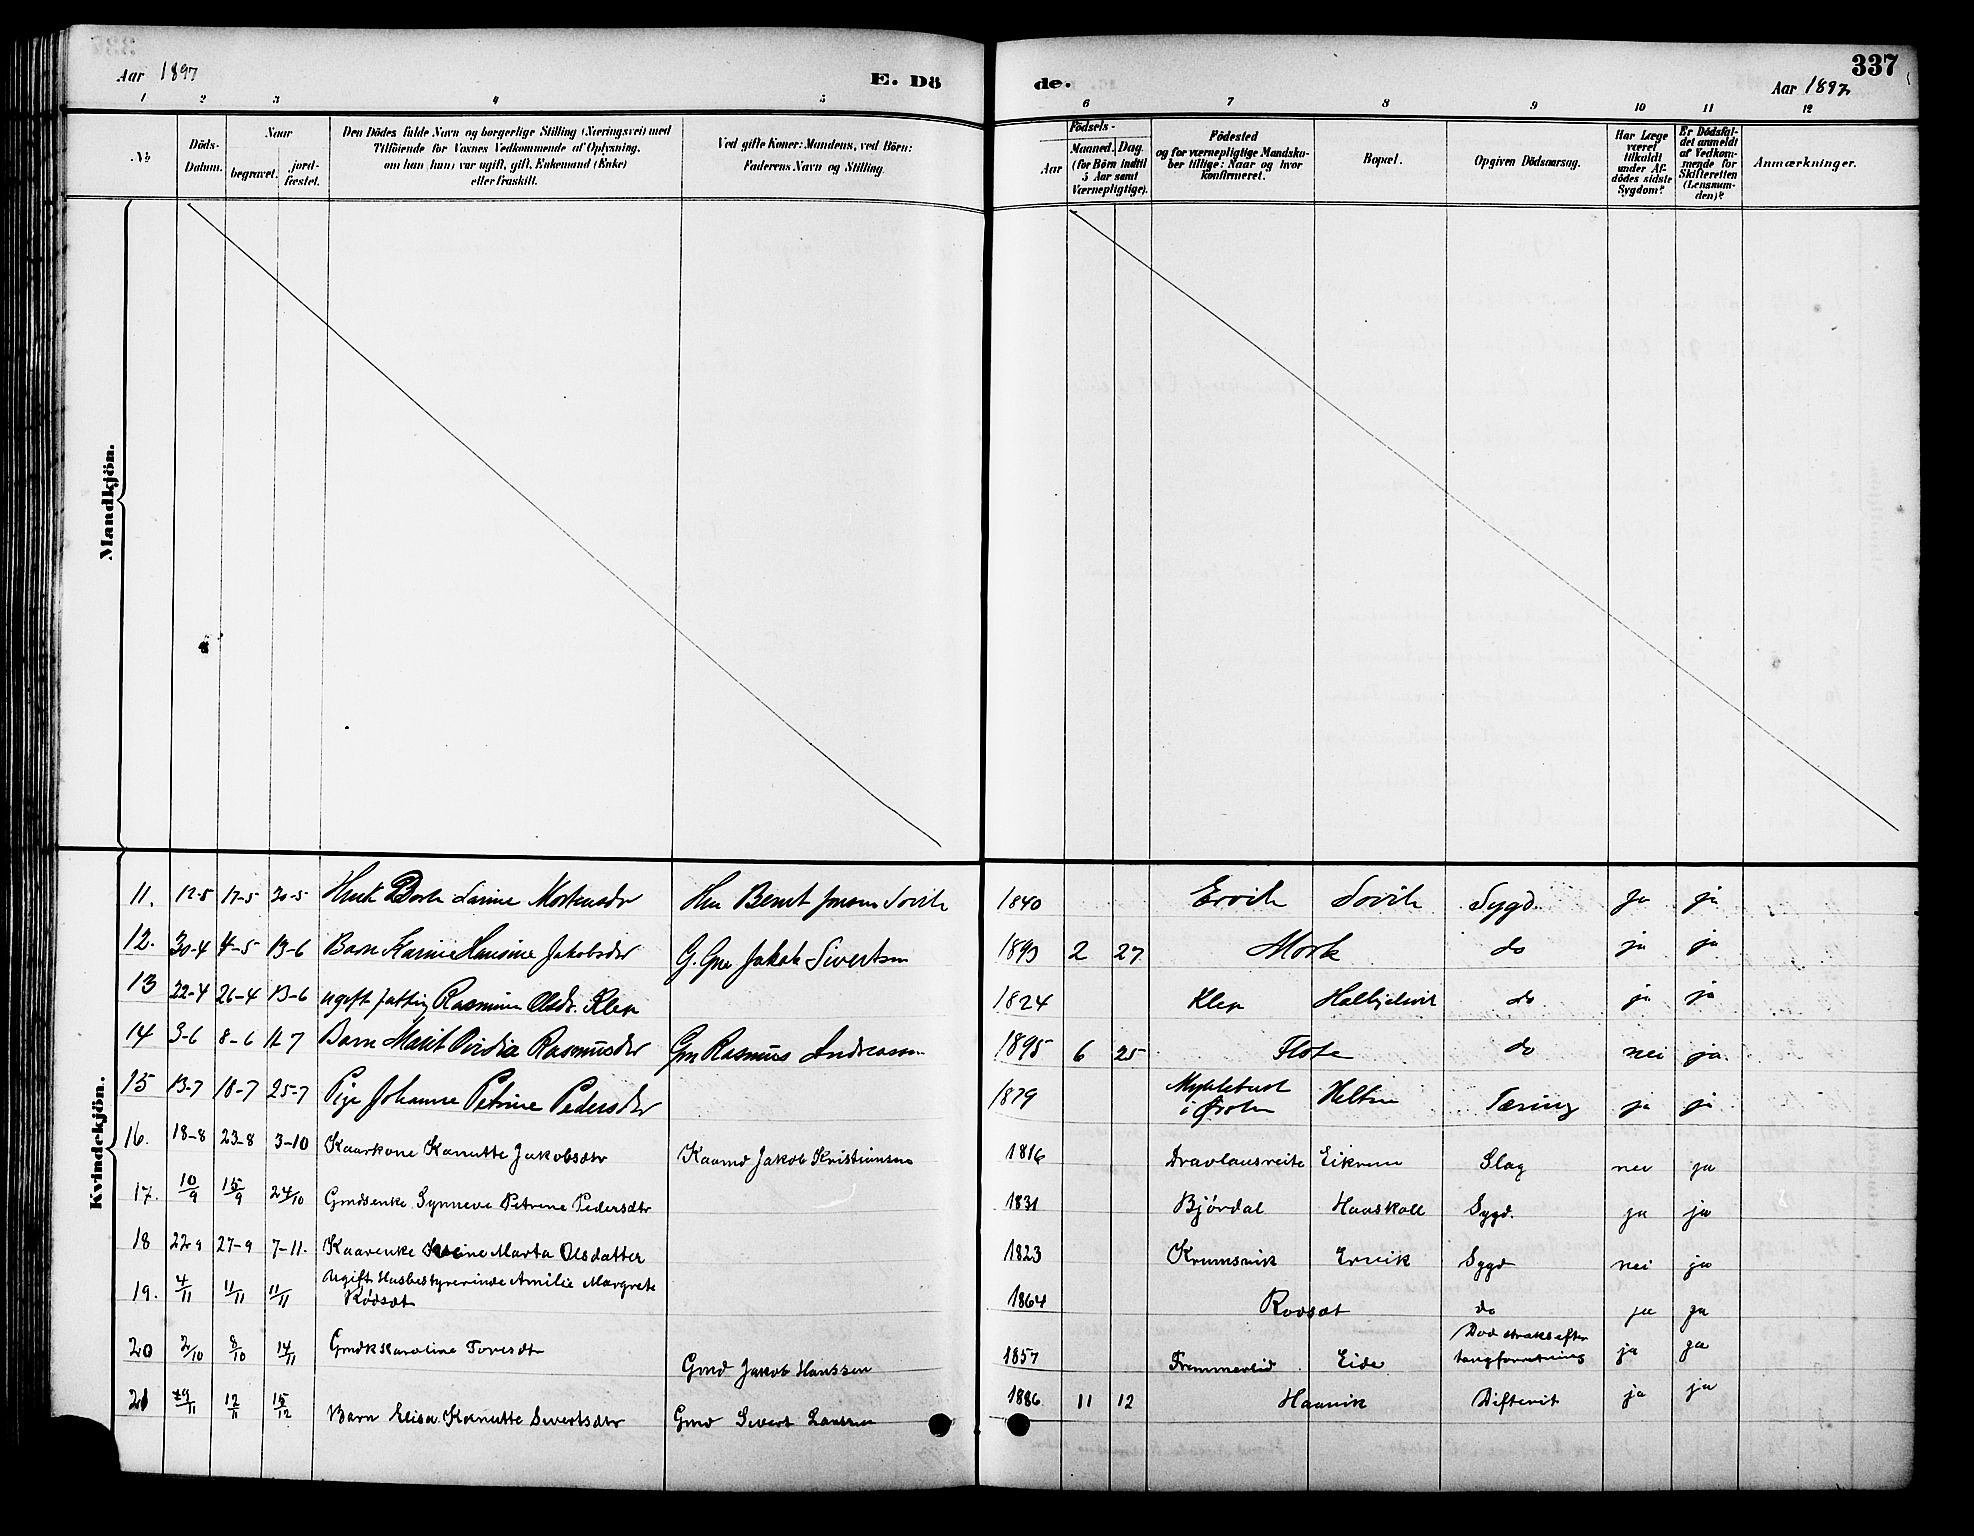 Aar 1897
E. Dö
de.
337
Aar 1897
1 2 3 4 5 6 7 8 9 10 11 12
No
Döds-Datum.
Naar
begravet.
jord-fæstet.
Den Dödes fulde Navn og borgerlige Stilling (Næringsvei) med
Tilföiende for Voxnes Vedkommende af Oplysning,
om han (hun) var ugift, gift, Enkemand (Enke)
eller fraskilt.
Ved gifte Koner: Mandens, ved Börn:
Faderens Navn og Stilling.
Födsels-
Aar
Maaned. Dag.
(for Börn indtil
5 Aar samt
Værnepligtige).
Födested
og for værnepligtige Mandska-
ber tillige: Naar og hvor
konfirmeret.
Bopæl.
Opgiven Dödsaarsag.
Har Læge
været
tilkaldt
under Af-
dödes sidste
Sygdom?
Er Dödsfal-
det anmeldt
af Vedkom-
mende for
Skifteretten
(Lensman-
den)?
Anmærkninger.
Mandkjön.
Kvindekjön.
11. 12-5 17-5 20-5 Mortensdr Bernt Jonsen Sovik 1840 Ervik Sovik Sygd. ja ja
12. 30-4 4-5 13-6 Barn Karine Hansine Jakobsdr Jakob Sivertsen 1893 2 27 Mork do ja ja
13 22-4 26-4 13-6 ugift fattig Rasmine Olsdr. Klep 1824 Klep do ja ja
14 3-6 8-6 11-7 Barn Marit Rasmusdr Gm Rasmus Andreassen 1895 6 25 Flote do nei ja
15 13-7 18-7 25-7 Pige Johanne Petrine Pedersdr 1879 Myklebust i Ørsten Heltne Tæring ja ja
16. 18-8 23-8 3-10 Kaarkone Kanutte Jakobsdtr Kaamd Jakob Kristiansen 1816 Dravlausreite Eikrem Slag nei ja
17. 10/9 15/9 24/10 Gmdsenke Synneve Petrine Pedersdtr 1831 Bjørdal Haaskoll Sygd. ja ja
18 22-9 27-9 7-11. Kaarenke Marta Olsdatter 1823 Krumsvik Ervik Sygd nei ja
19. 4/11 11/11 11/11 Ugift Husbestyrerinde Amilie Margrete
Rødsæt 1864 Rødsæt do ja ja
20 2/10 8/10 14/11 Gmdk Karoline Toresdtr Gmd Jakob Hanssen 1857 Fremmerlid Eide Død straks efter
tangforretning ja ja
21 12/11 15/12 Barn Elisa Kanutte Sivertsdtr Gmd Sivert Larssen 1886 11 12 Haavik Difterit ja ja